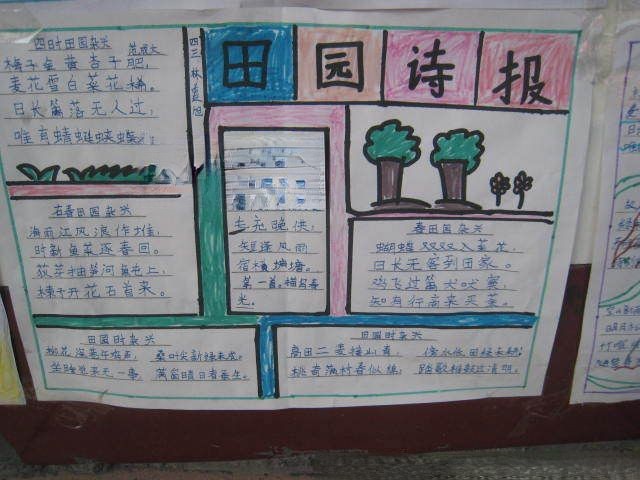 田园诗报
四三 林
四时田园杂兴 范成大
梅子金黄杏子肥,
麦花雪白菜花稀。
日长篱落无人过,
唯有蜻蜓蛱蝶。
春田园杂兴
海雨江风浪作堆,
时新鱼菜逐春回。
荻芽抽笋河鱼上,
楝子开花石首来。
土 晚供,
短篷风雨
宿横塘。
第一首。描写春
光。
春田园杂兴
蝴蝶双双入菜花,
日长无客到田家。
鸡飞过篱犬吠窦,
知有行商来买茶。
田园时杂兴
柳花深巷午鸡声, 桑叶尖新绿未成。
坐睡觉来无一事, 满窗晴日看蚕生。
田园时杂兴
高田二麦接山青, 傍水低田绿未耕。
桃杏满村春似锦, 踏歌椎鼓过清明。